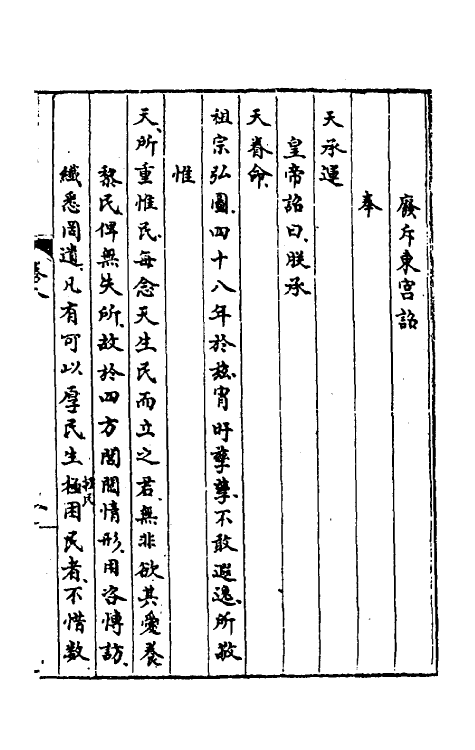 廢斥東宮詔
奉
天承運
皇帝詔曰朕承
天眷命
祖宗弘圖四十八年於茲宵旰孳孳不敢遐逸所敬
惟
天所重惟民每念天生民而立之君無非欲其愛養
黎民俾無失所故於四方閭閻情形用咨博訪
纖悉罔遺凡有可以厚民生極困民者不惜数
拯民
卷八